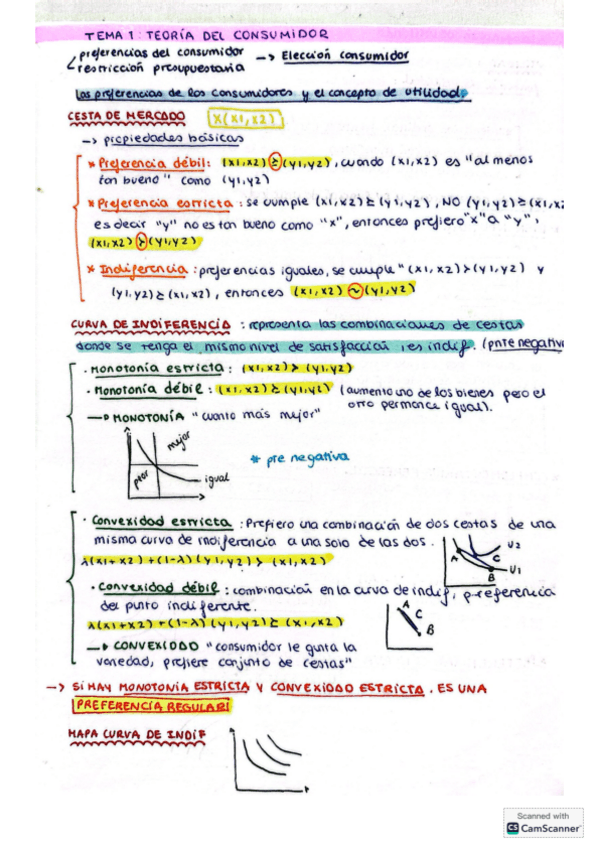 TEMA 1: TEORÍA DEL CONSUMIDOR
preferencias del consumidor
restricción presupuestaria → Elección consumidor
Las preferencias de los consumidores y el concepto de utilidad.
CESTA DE MERCADO X(x1,x2)
→ propiedades básicas
* Preferencia débil: (x1,x2) ≥ (y1,y2), cuando (x1,x2) es "al menos
tan bueno" como (y1,y2)
* Preferencia estricta: se cumple (x1,x2) ≥ (y1,y2), NO (y1,y2) ≥ (x1,x2
es decir "y" no es tan bueno como "x", entonces prefiero "x" a "y",
(x1,x2) > (y1,y2)
* Indiferencia: preferencias iguales, se cumple "(x1,x2) > (y1,y2) y
(y1,y2) ≥ (x1,x2), entonces (x1,x2) ~ (y1,y2)
CURVA DE INDIFERENCIA: representa las combinaciones de cestas
donde se tenga el mismo nivel de satisfacción, es indif. (pnte negativ
· Monotonía estricta: (x1,x2) > (y1,y2)
· Monotonía débil: (x1,x2) ≥ (y1,y2) (aumento uno de los bienes pero el
otro permance igual).
→ MONOTONÍA "cuanto más mejor"
mejor
peor
igual
* pre negativa
· Convexidad estricta: Prefiero una combinación de dos cestas de una
misma curva de indiferencia a una solo de las dos.
λ(x1+x2)+(1-λ)(y1,y2) > (x1,x2)
A C B U2 U1
· Convexidad débil: combinación en la curva de indif, preferencia
del punto indiferente.
λ(x1+x2)+(1-λ)(y1,y2) ≥ (x1,x2)
A C B
→ CONVEXIDAD "consumidor le gusta la
variedad, prefiere conjunto de cestas"
→ SI HAY MONOTONÍA ESTRICTA Y CONVEXIDAD ESTRICTA. ES UNA
PREFERENCIA REGULAR!
MAPA CURVA DE INDIF
Scanned with
CS CamScanner